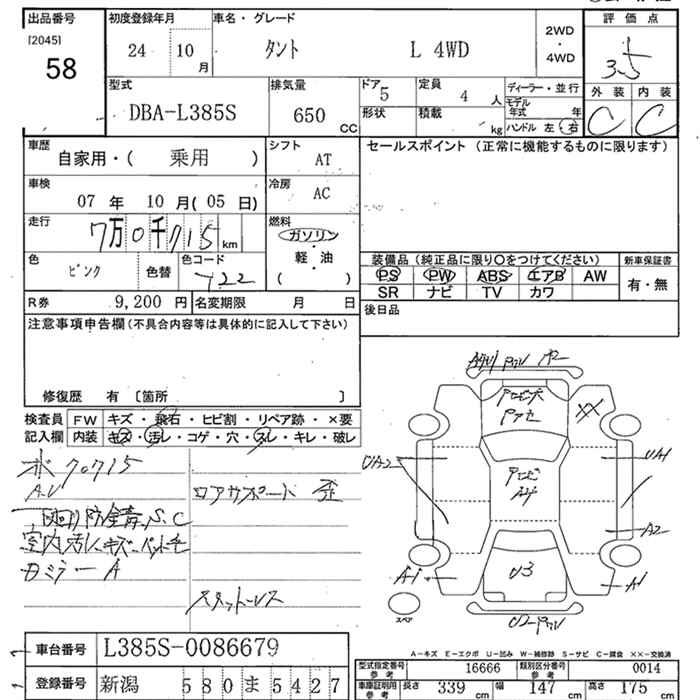 出品番号 初度登録年月 車名・グレード 2WD・4WD 評価点
[2045]
58
24 10月 タント L 4WD 3.5
型式 排気量 ドア 定員 ディーラー・並行 外装 内装
DBA-L385S 650CC 5 4人 モデル年式 年 C C
形状 積載 kg ハンドル 左・右
車歴 シフト セールスポイント (正常に機能するものに限ります)
自家用・( 乗用 ) AT
車検 冷房
07年 10月(05日) AC
走行 燃料
7万0千715km ガソリン・軽・油
( )
色 色替 色コード
ピンク T22
装備品(純正品に限り○をつけてください) 新車保証書
PS PW ABS エアB AW 有・無
SR ナビ TV カワ
R券 9,200円 名変期限 月 日 後日品
注意事項申告欄(不具合内容等は具体的に記入して下さい)
修復歴 有 [箇所 ]
検査員 FW キズ・飛石・ヒビ割・リペア跡・×要
記入欄 内装 キズ・汚レ・コゲ・穴・スレ・キレ・破レ
70715
A.V ロアサポート 歪
下回り防錆 S.C
室内汚レキズ
カミラー A
スタットレス
XX
UA2 UA1
A2
A1 U3 A1
スペア
A-キズ E-エクボ U-凹み W-補修跡 S-サビ C-腐食 ××-交換済
車台番号 L385S-0086679
登録番号 新潟 580ま5427
型式指定番号 参考 16666 類別区分番号 参考 0014
車庫証明用 参考 長さ 339cm 幅 147cm 高さ 175cm